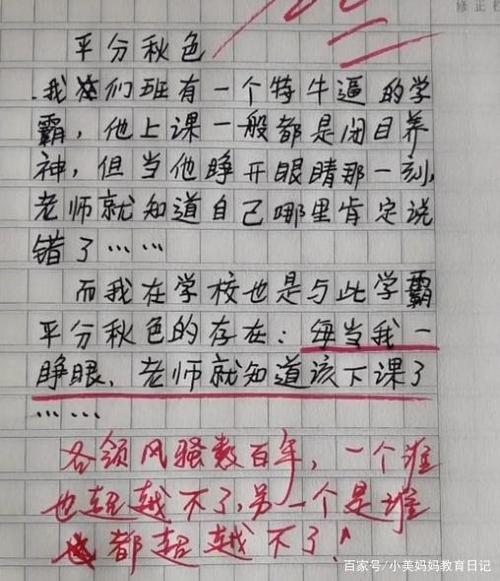 平分秋色
我们班有一个特牛逼的学
霸，他上课一般都是闭目养
神，但当他睁开眼睛那一刻，
老师就知道自己哪里肯定说
错了……
而我在学校也是与此学霸
平分秋色的存在：每当我一
睁眼，老师就知道该下课了
……
各领风骚数百年，一个谁
也超越不了，另一个是谁
都超越不了！
百家号/小美妈妈教育日记